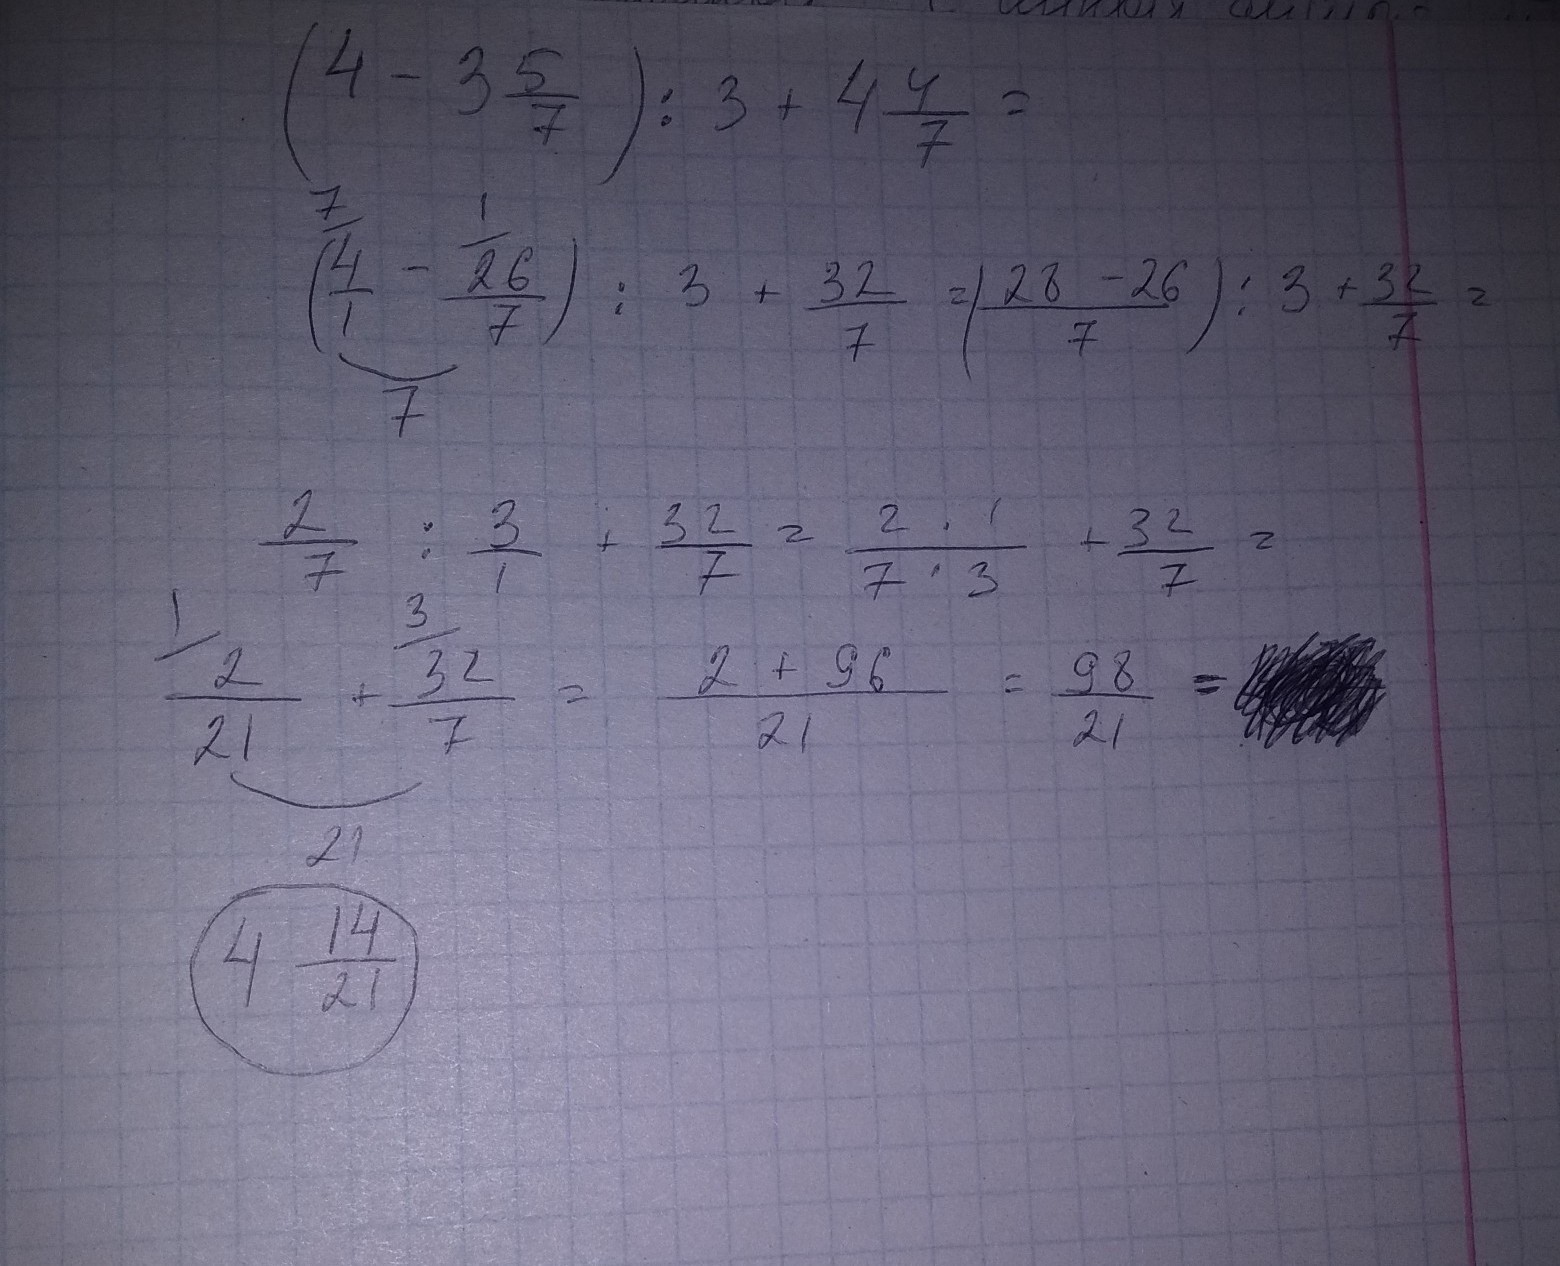 (4 - 3 5/7) : 3 + 4 4/7 =
7/ 1/
(4/1 - 26/7) : 3 + 32/7 = (28 - 26/7) : 3 + 32/7 =
7
2/7 : 3/1 + 32/7 = 2 · 1/7 · 3 + 32/7 =
1/ 3/
2/21 + 32/7 = 2 + 96/21 = 98/21 =
21
4 14/21